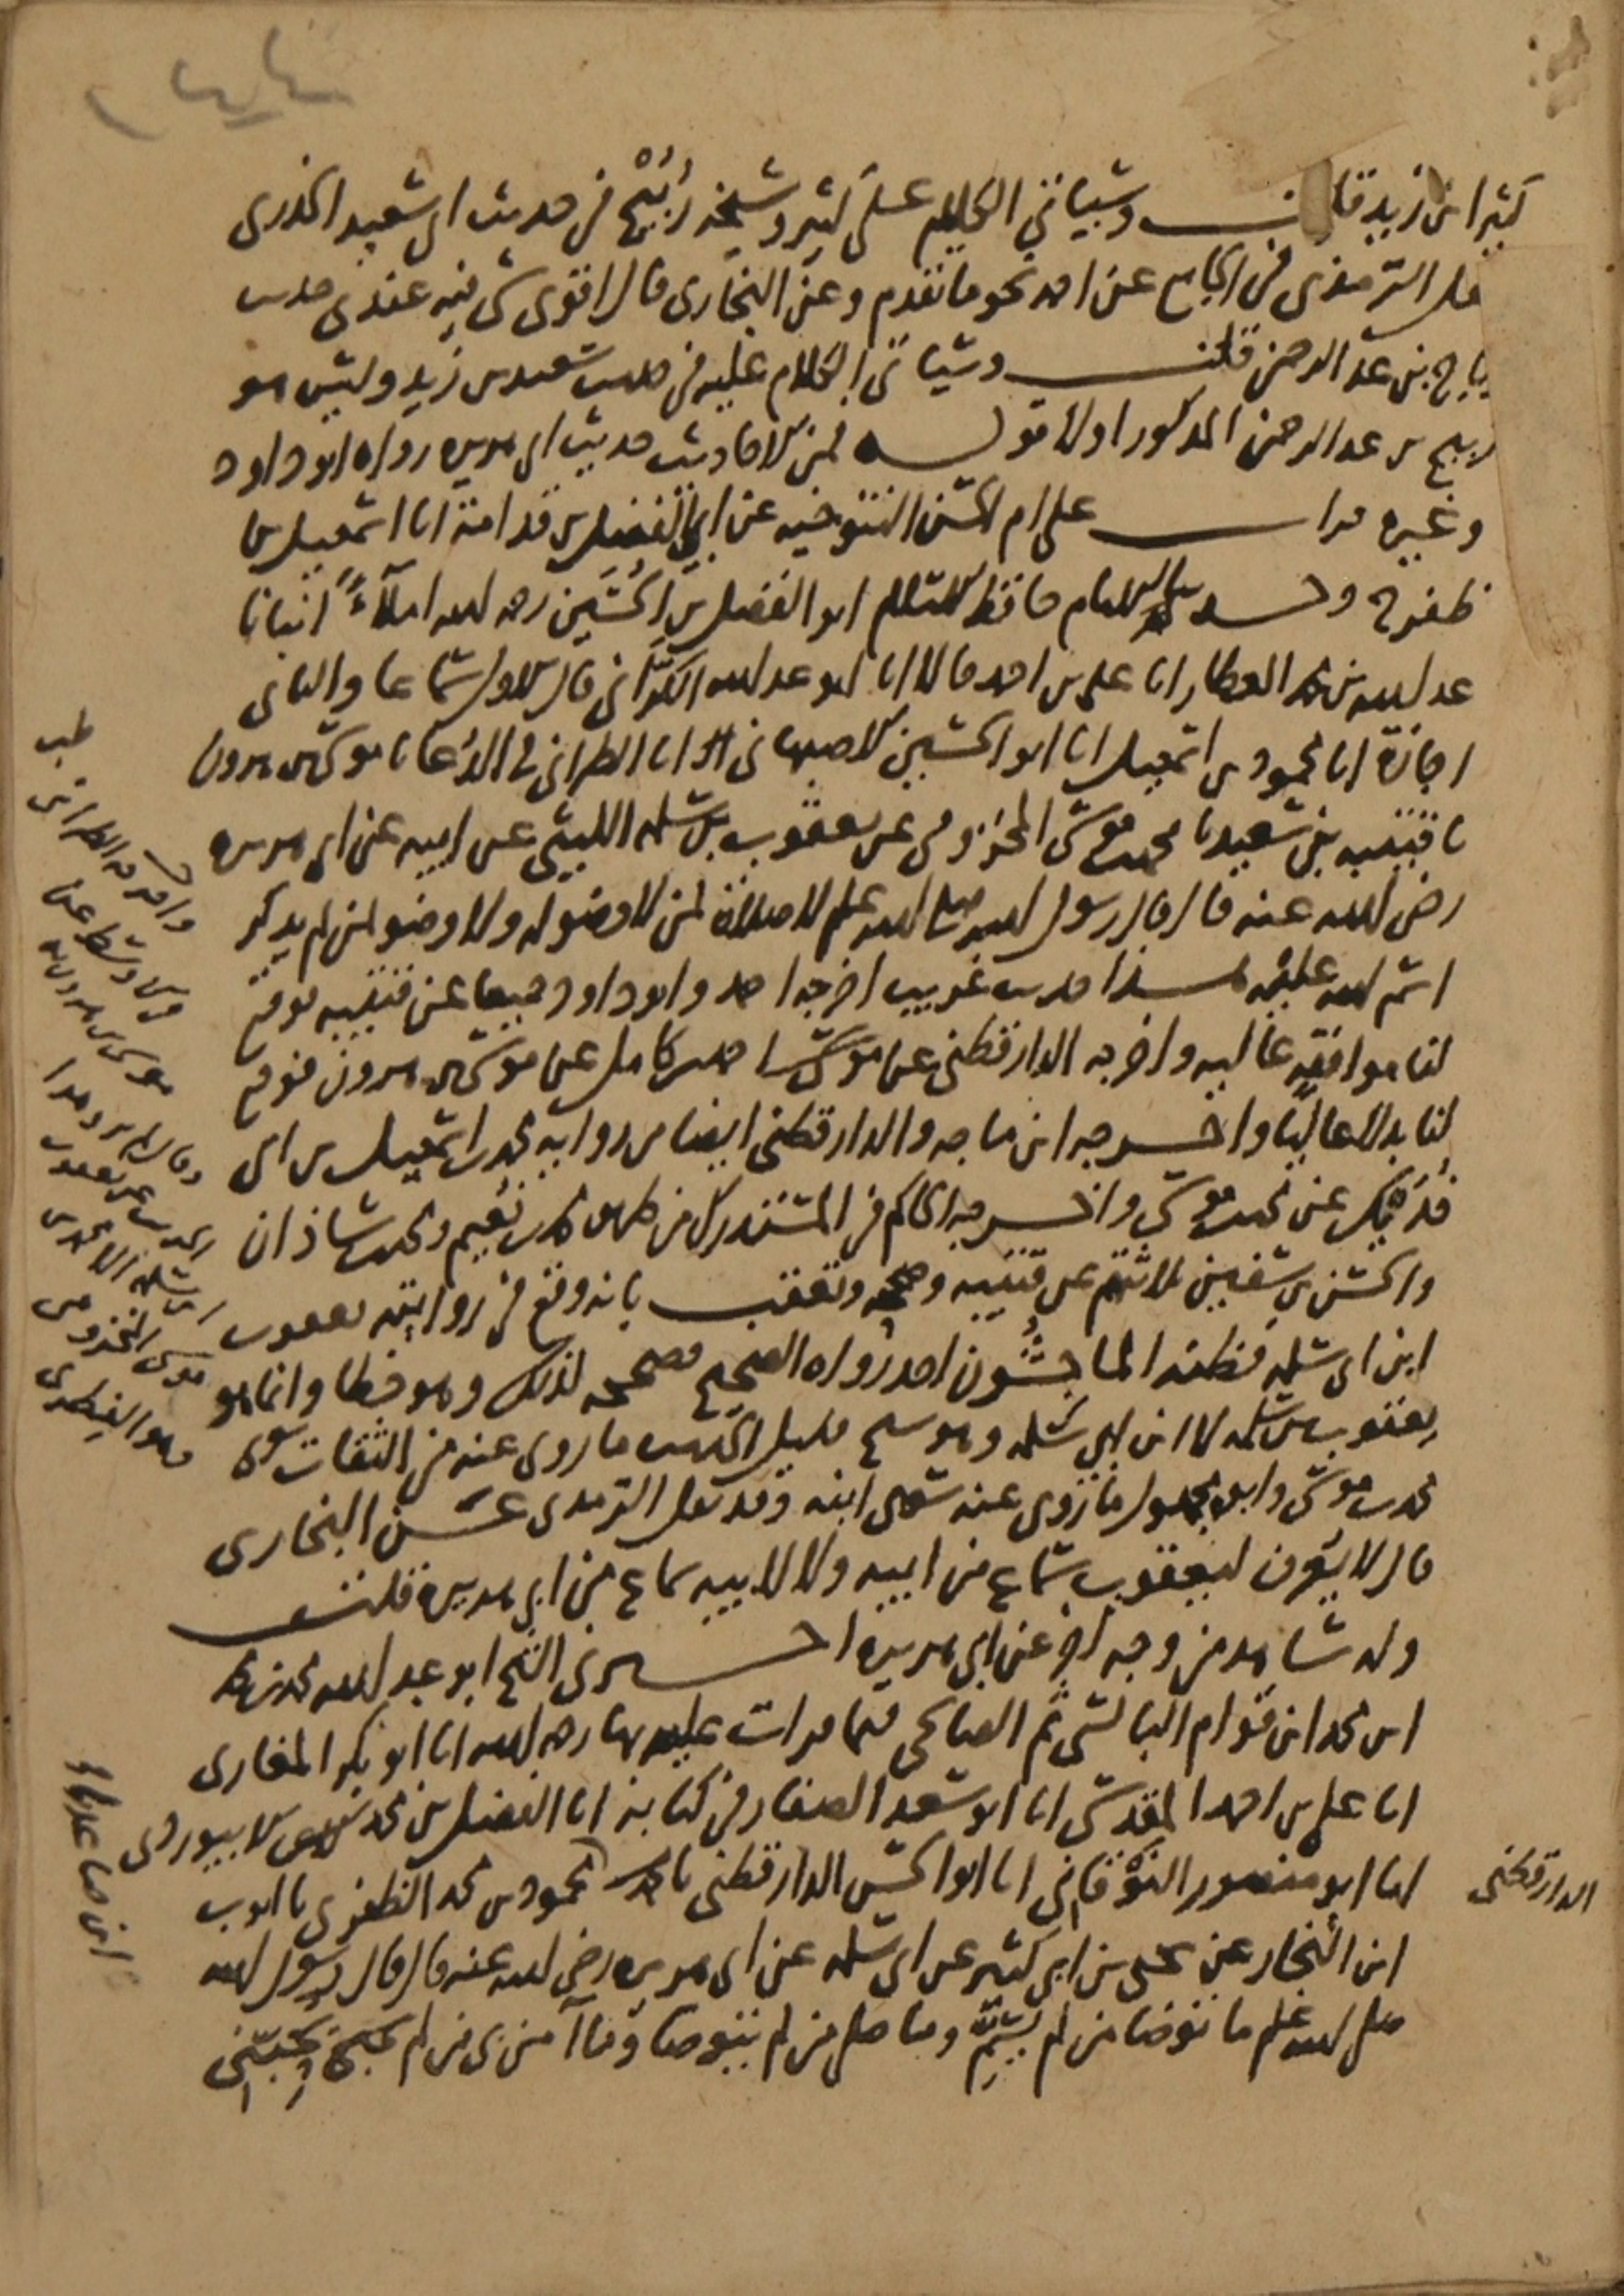 كثير ابن زيد قلت وسياتي الكلام على كثير وشيخه رُبَيْح في حديث ابي سعيد الخدري
نقل الترمذي في الجامع عن احمد نحو ما تقدم وعن البخاري قال اقوى شي فيه عندي حديث
رباح بن عبد الرحمن قلت وسياتي الكلام عليه في حديث سعيد بن زيد وليس هو
ربيح بن عبد الرحمن المذكور اولا قوله فمن الاحاديث حديث ابي هريرة رواه ابو داود
وغيره قرات على ام الحسن التنوخيه عن ابي الفضل بن قدامة انا اسمعيل بن
ظفر ح وحدثنا الامام حافظ الاسلام ابو الفضل بن الحسين رحمه الله املاءً انبانا
عبد الله بن محمد العطار انا علي بن احمد قالا انا ابو عبد الله الكرّاني قال الاول سماعا والثاني
اجازة انا محمود بن اسمعيل انا ابو الحسين الاصبهاني انا الطبراني في الدعا نا موسى بن هرون
نا قتيبه بن سعيد نا محمد بن موسى المخزومي عن يعقوب بن سلمه الليثي عن ابيه عن ابي هريره
رضي الله عنه قال قال رسول الله صلى الله عليه وسلم لا صلاة لمن لا وضو له ولا وضو لمن لم يذكر
اسم الله عليه هذا حديث غريب اخرجه احمد وابو داود جميعا عن قتيبه فوقع
لنا موافقه عاليه واخرجه الدارقطني عن احمد بن كامل عن موسى بن هرون فوقع
لنا بدلا عاليا واخرجه ابن ماجه والدارقطني ايضا من روايه محمد بن اسمعيل بن ابي
فديك عن محمد بن موسى واخرجه الحاكم في المستدرك من طريق محمد بن نعيم ومحمد بن شاذان
والحسن بن سفين ثلاثتهم عن قتيبه وصححه وتعقب بانه وقع في روايته يعقوب
ابن ابي سلمه فظنه الماجِشُون احد رواه الصحيح فصححه لذلك وهو خطا وانما هو
يعقوب بن سلمه لا ابن ابي سلمه وهو شيخ قليل الحديث ما روى عنه من الثقات سوى
محمد بن موسى وابوه مجهول ما روى عنه سوى ابنه وقد نقل الترمذي عن البخاري
قال لا يعرف ليعقوب سماع من ابيه ولا لابيه سماع من ابي هريرة قلت
وله شاهد من وجه اخر عن ابي هريره اخبرني الشيخ ابو عبد الله محمد بن محمد
ابن محمد ابن قوام البالسي ثم الصالحي فيما قرات عليه بها رحمه الله انا ابو بكر المغاري
انا علي بن احمد المقدسي انا ابو سعد الصفار في كتابه انا الفضل بن محمد الابيوردي
انا ابو منصور النَوْقاني انا ابو الحسن الدارقطني نا محمود بن محمد الظفري نا ايوب
الدارقطني
ابن النجار عن يحيى بن ابي كثير عن ابي سلمه عن ابي هريره رضي الله عنه قال قال رسول الله
صلى الله عليه وسلم ما توضا من لم يُسَمِّ وما صلى من لم يتوضا وما آمن بي من لم يحبني
طب
واخرجه الطبراني
في الاوسط عن
موسى بن هرون